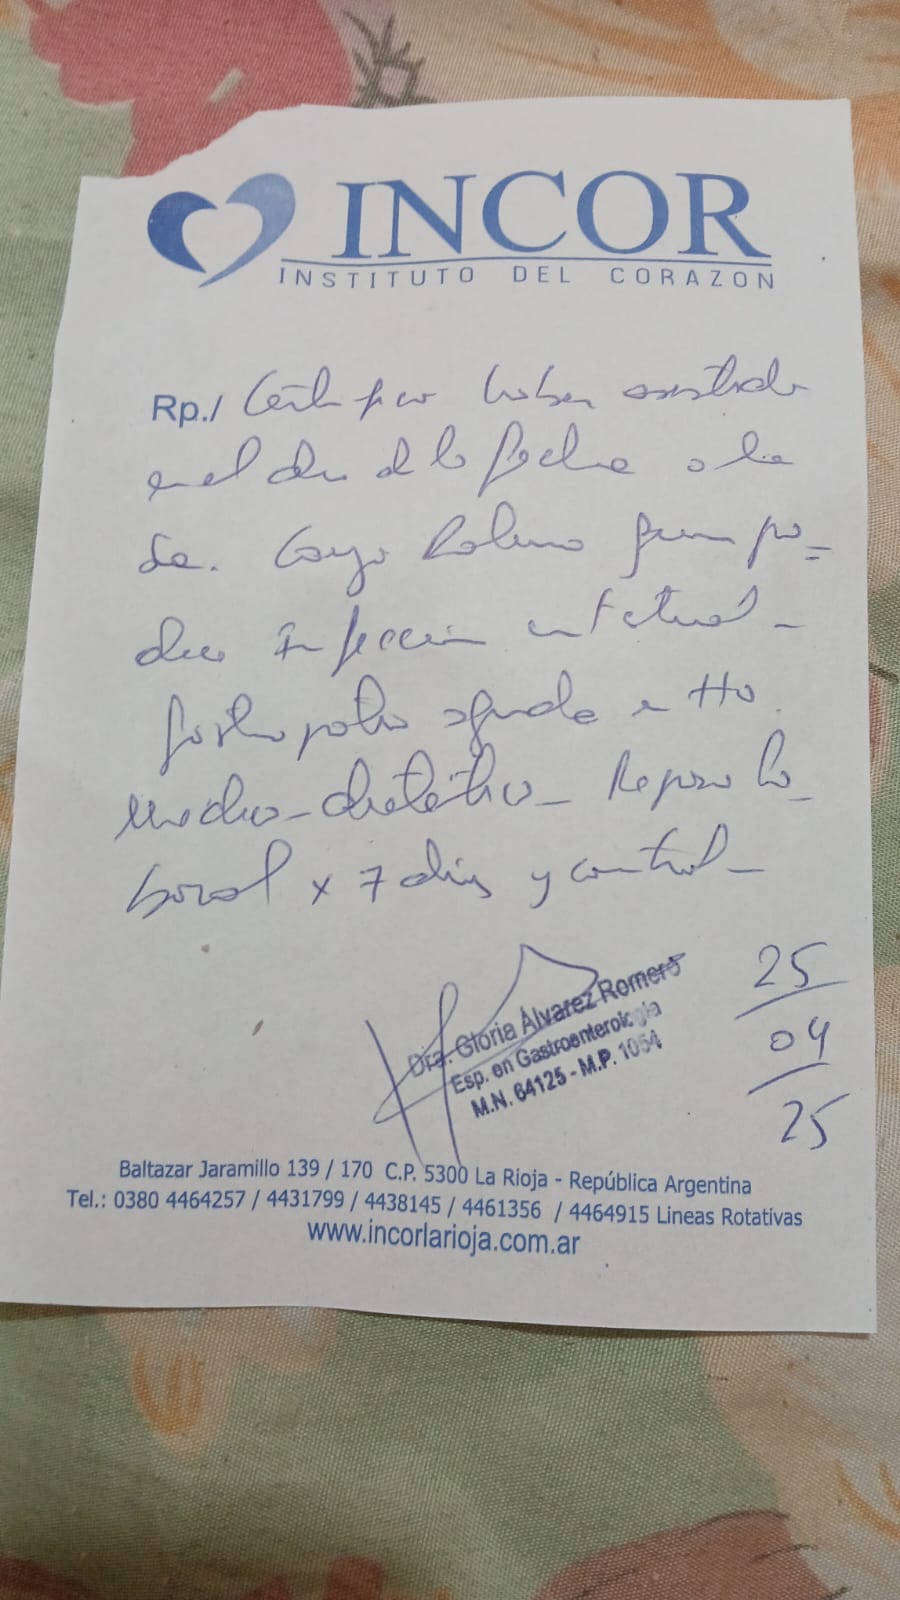 INCOR
INSTITUTO DEL CORAZON
Rp./ haber asistido
en el día de la fecha a la
Sra. quien pa=
dece Infección intestinal -
gastropatía aguda en tto.
médico-dietético - Reposo la-
boral x 7 días y control -
Dra. Gloria Alvarez Romero
Esp. en Gastroenterología
M.N. 64125 - M.P. 1054
25
04
25
Baltazar Jaramillo 139 / 170 C.P. 5300 La Rioja - República Argentina
Tel.: 0380 4464257 / 4431799 / 4438145 / 4461356 / 4464915 Lineas Rotativas
www.incorlarioja.com.ar